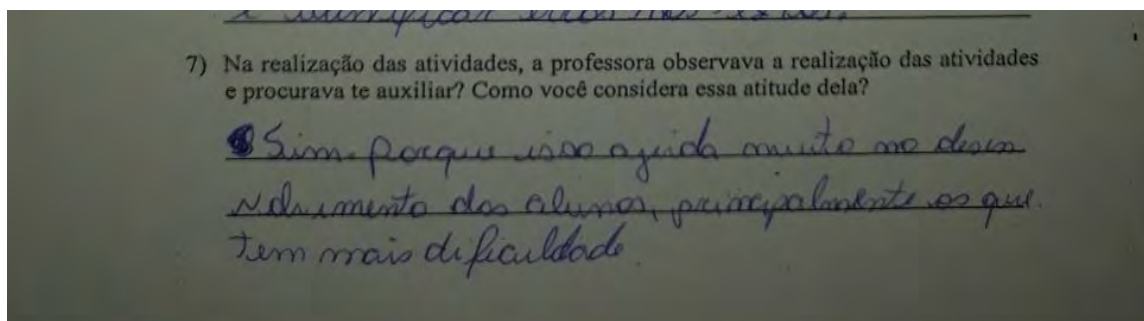 7) Na realização das atividades, a professora observava a realização das atividades
e procurava te auxiliar? Como você considera essa atitude dela?
Sim. porque isso ajuda muito no desen
volvimento dos alunos, principalmente os que
tem mais dificuldade.